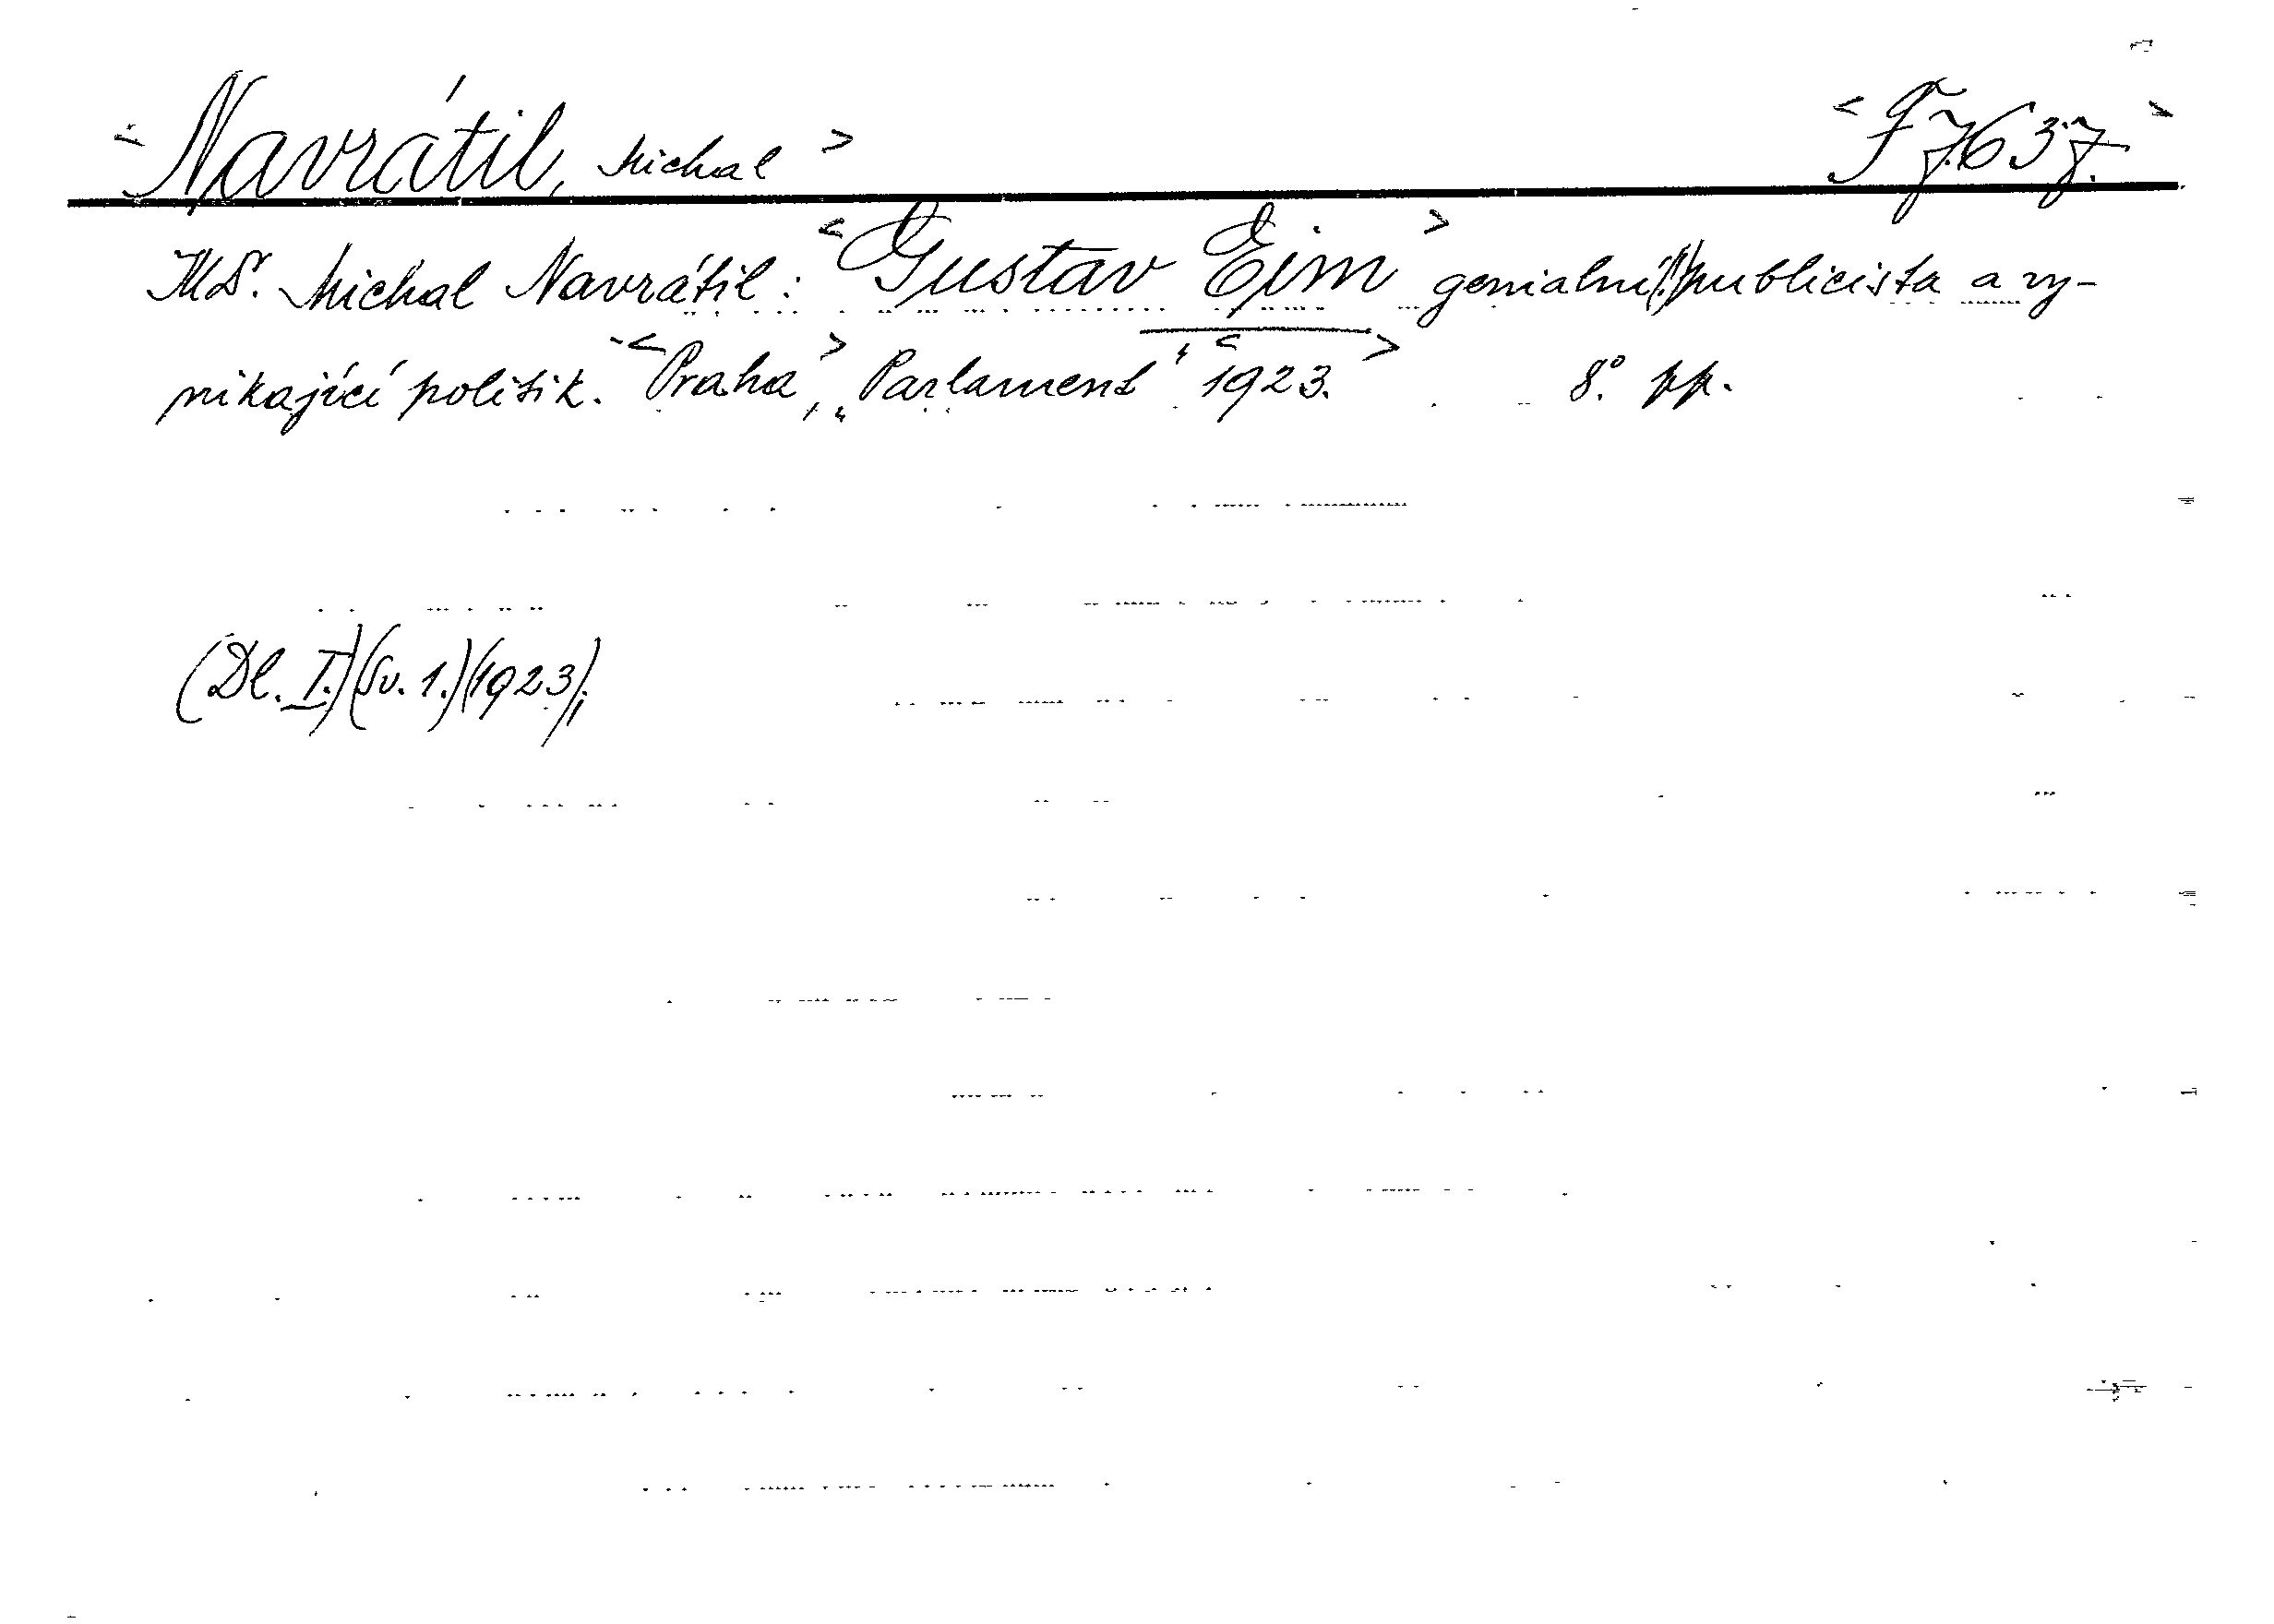 <Navrátil, Michal> <F 7637.>
JUDr. Michal Navrátil: <Gustav Eim> genialní(!) publicista a vy-
nikající politik. <Praha>, „Parlament“ <1923.> 8°. pp.
(Dl. I.)(Sv. 1.)(1923);